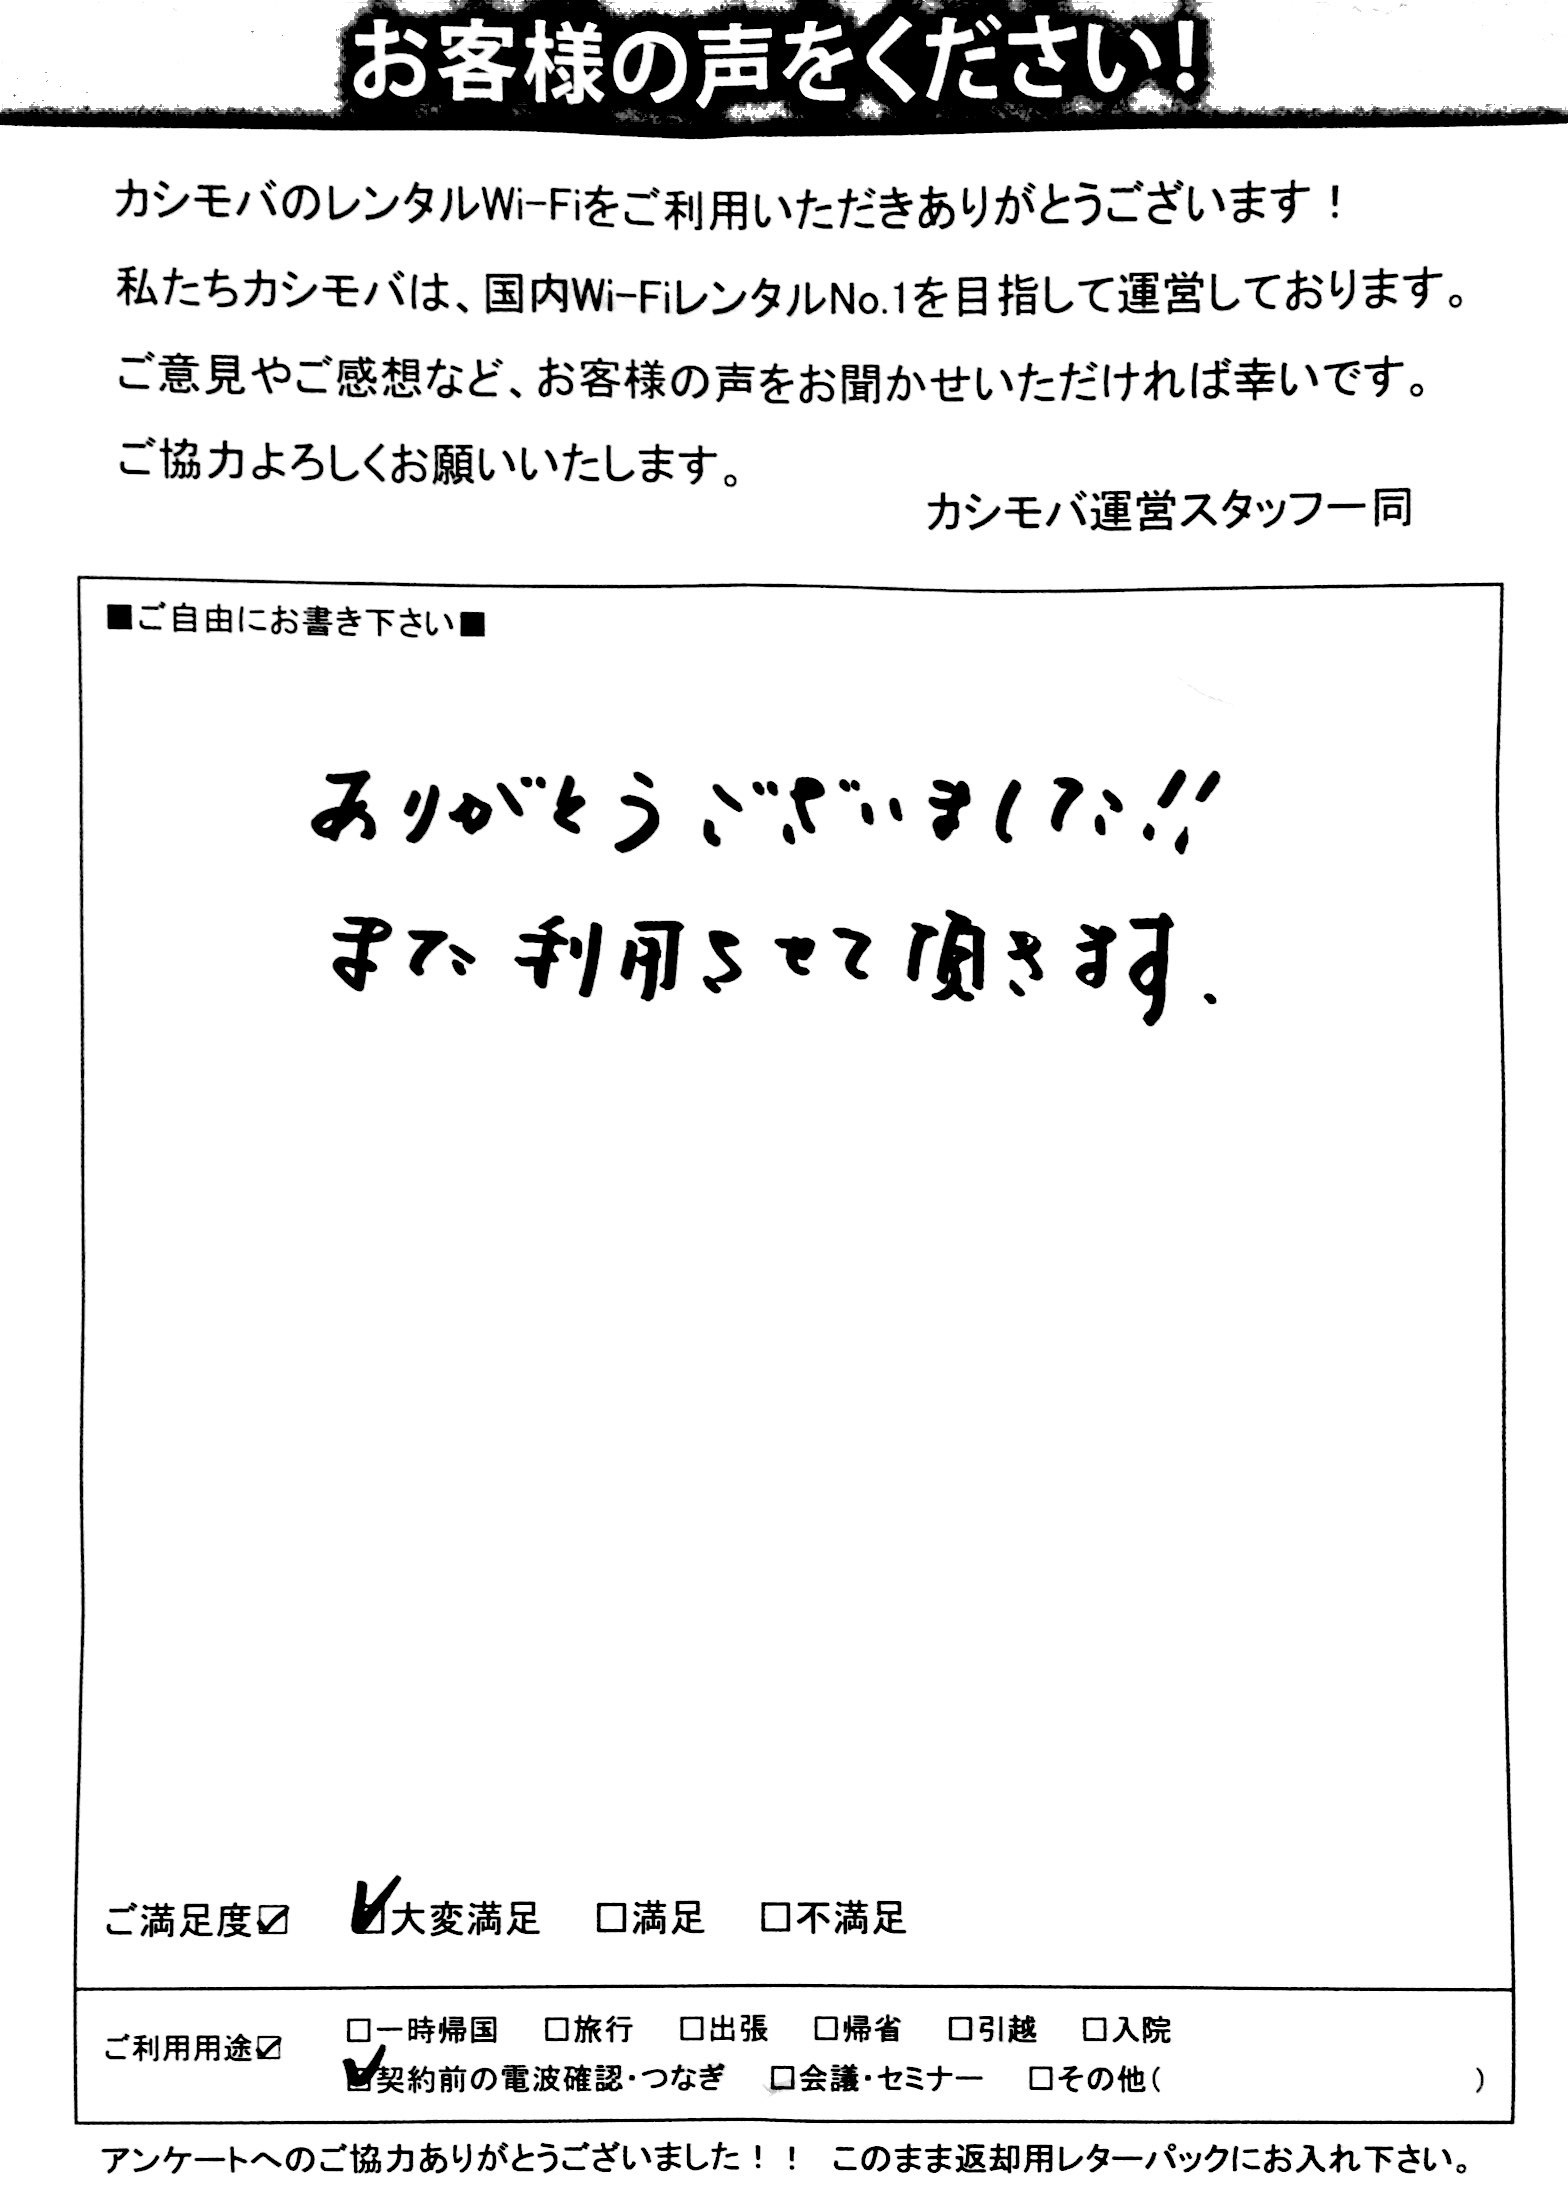 お客様の声をください!
カシモバのレンタルWi-Fiをご利用いただきありがとうございます！
私たちカシモバは、国内Wi-FiレンタルNo.1を目指して運営しております。
ご意見やご感想など、お客様の声をお聞かせいただければ幸いです。
ご協力よろしくお願いいたします。
カシモバ運営スタッフ一同
■ご自由にお書き下さい■
ありがとうございました!!
また利用させて頂きます.
ご満足度☑ ☑大変満足 □満足 □不満足
ご利用用途☑ □一時帰国 □旅行 □出張 □帰省 □引越 □入院
☑契約前の電波確認・つなぎ □会議・セミナー □その他( )
アンケートへのご協力ありがとうございました！！ このまま返却用レターパックにお入れ下さい。